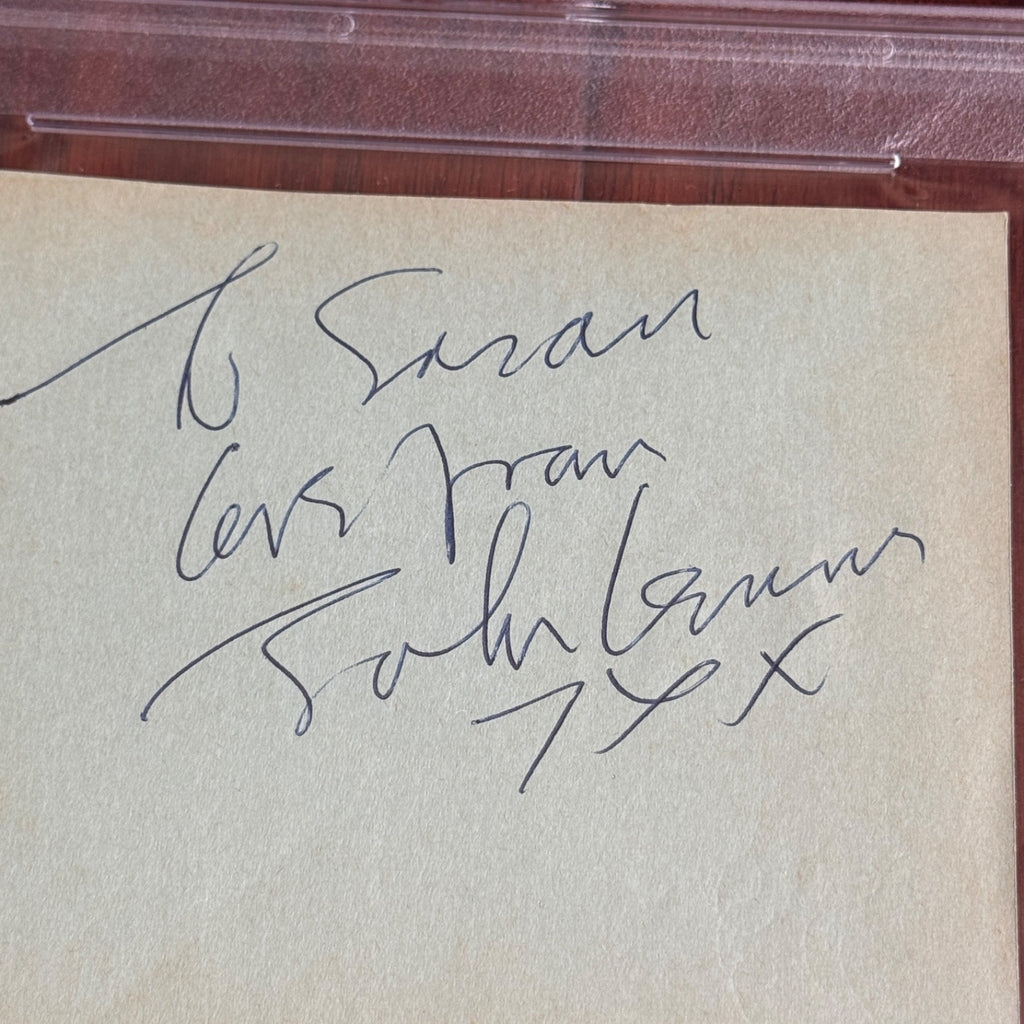 To Sarah
love from
John Lennon
xxx